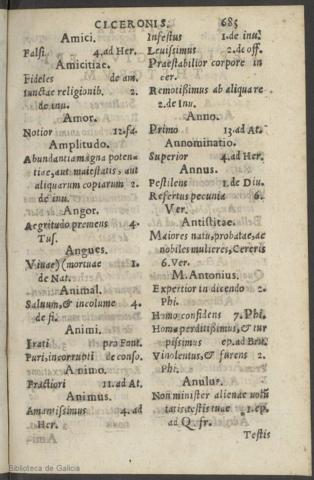 CICERONIS. 685
Amici.
Falsi. 4.ad Her.
Amicitiae.
Fideles de am.
Iunctae religionib. 2.
de inu.
Amor.
Notior 12.fa.
Amplitudo.
Abundantia magna poten
tiae, aut maiestatis, aut
aliquarum copiarum 2.
de inu.
Angor.
Aegritudo premens 4.
Tus.
Angues.
Viuae)(mortuae 1.
de Nat.
Animal.
Saluum, & incolume 4.
de fi.
Animi.
Irati pro Font.
Puri, incorrupti de conso.
Animo.
Practiori 11.ad At.
Animus.
Amantissimus 4. ad
Her.
Infestus 1.de inu.
Leuissimus 2.de off.
Praestabilior corpore in
cer.
Remotissimus ab aliqua re
2.de Inu.
Anno.
Primo 13.ad At.
Annominatio.
Superior 4.ad Her.
Annus.
Pestilens 1.de Diu.
Refertus pecunia 6.
Ver.
Antistitae.
Maiores natu, probatae, ac
nobiles mulieres, Cereris
6.Ver.
M. Antonius.
Expertior in dicendo 2.
Phi.
Homo confidens 7. Phi.
Homo perditissimus, & tur
pissimus ep.ad Bru.
Vinolentus, & furens 2.
Phi.
Anulus.
Non minister alienae volū
tatis testis tuae 1.ep.
ad Q.fr.
Testis
Biblioteca de Galicia